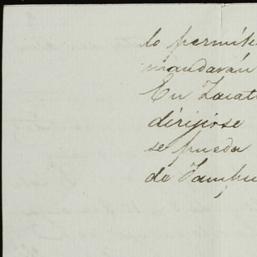 lo permit
mandarán
En Zacat
dirijirse
se pueda
de Tampi